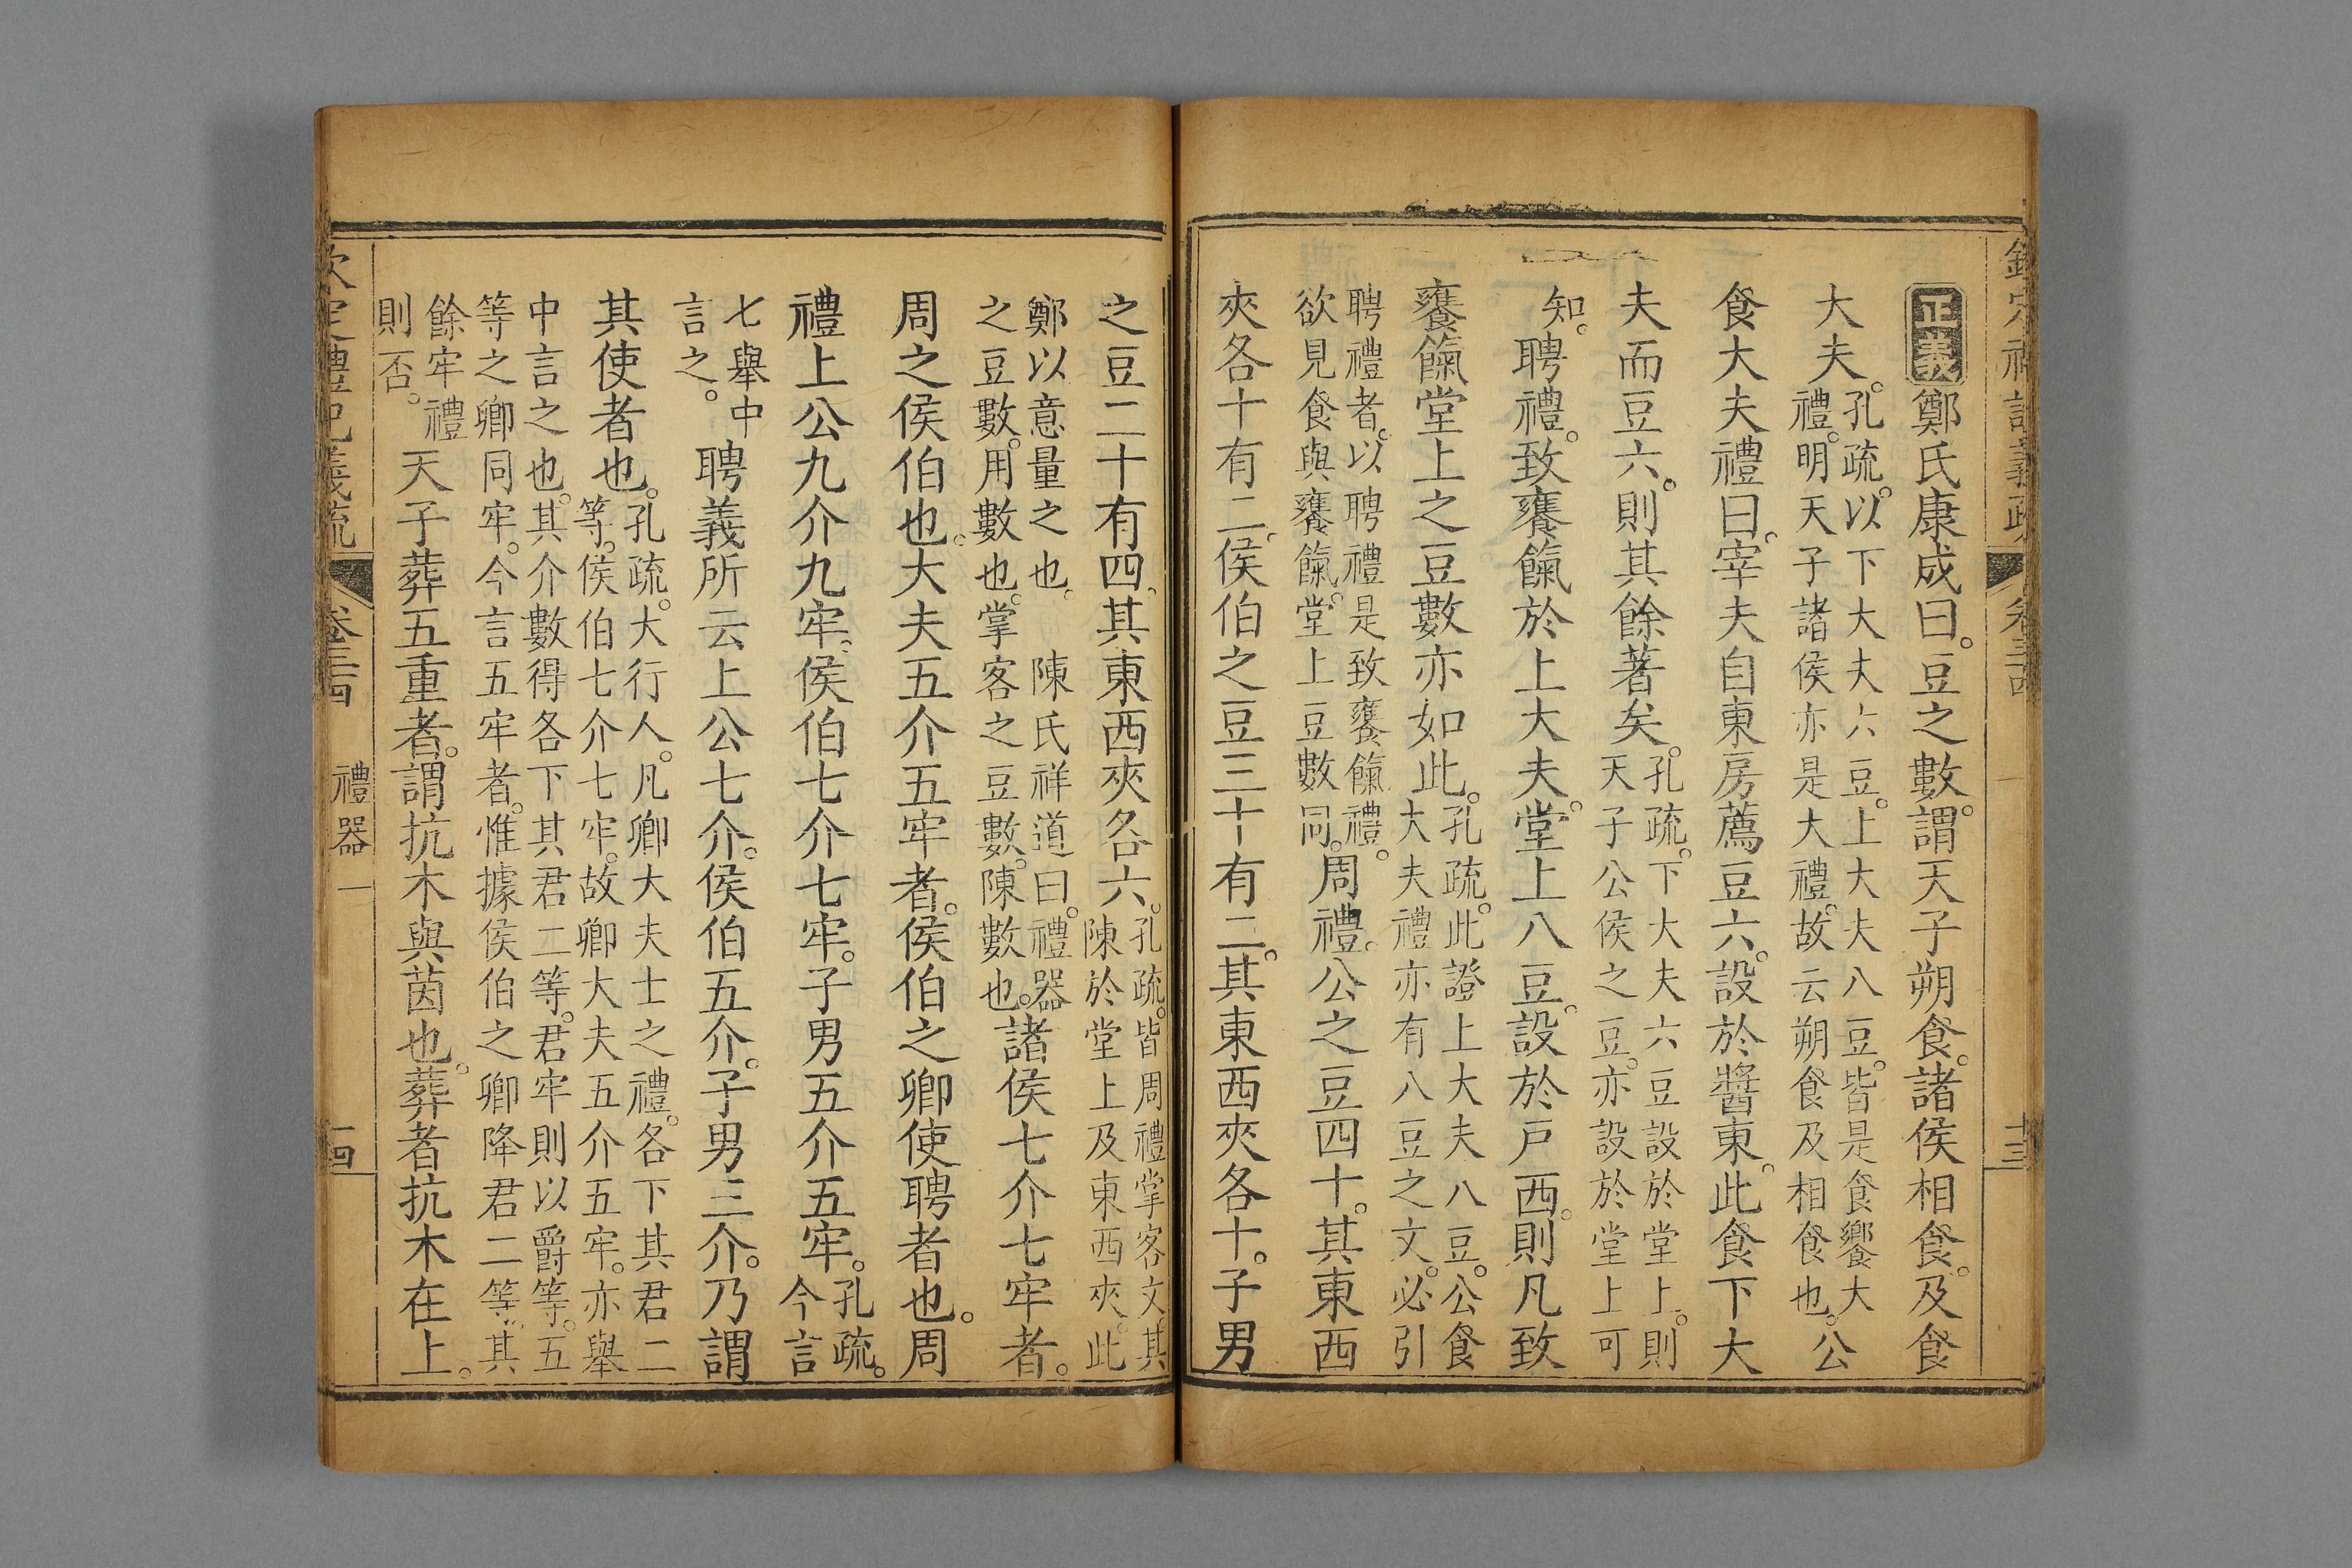 欽定禮記義疏 卷三十四 十三
正義鄭氏康成曰。豆之數。謂天子朔食。諸侯相食。及食
大夫。孔疏。以下大夫六豆。上大夫八豆。皆是食饗大
禮。明天子諸侯亦是大禮。故云朔食及相食也。公
食大夫禮曰。宰夫自東房薦豆六。設於醬東。此食下大
夫而豆六。則其餘著矣。孔疏。下大夫六豆設於堂上。則
天子公侯之豆。亦設於堂上可
知。聘禮。致饔餼於上大夫。堂上八豆。設於戶西。則凡致
饔餼堂上之豆數亦如此。孔疏。此證上大夫八豆。公食
大夫禮亦有八豆之文。必引
聘禮者。以聘禮是致饔餼禮。
欲見食與饔餼。堂上豆數同。周禮。公之豆四十。其東西
夾各十有二。侯伯之豆三十有二。其東西夾各十。子男
之豆二十有四。其東西夾各六。孔疏。皆周禮掌客文。其
陳於堂上及東西夾。此
鄭以意量之也。 陳氏祥道曰。禮器
之豆數。用數也。掌客之豆數。陳數也。諸侯七介七牢者。
周之侯伯也。大夫五介五牢者。侯伯之卿使聘者也。周
禮上公九介九牢。侯伯七介七牢。子男五介五牢。孔疏。
今言
七舉中
言之。聘義所云上公七介。侯伯五介。子男三介。乃謂
其使者也。孔疏。大行人。凡卿大夫士之禮。各下其君二
等。侯伯七介七牢。故卿大夫五介五牢。亦舉
中言之也。其介數得各下其君二等。君牢則以爵等。五
等之卿同牢。今言五牢者。惟據侯伯之卿降君二等。其
餘牢禮
則否。天子葬五重者。謂抗木與茵也。葬者抗木在上。
欽定禮記義疏 卷三十四 禮器一 十四